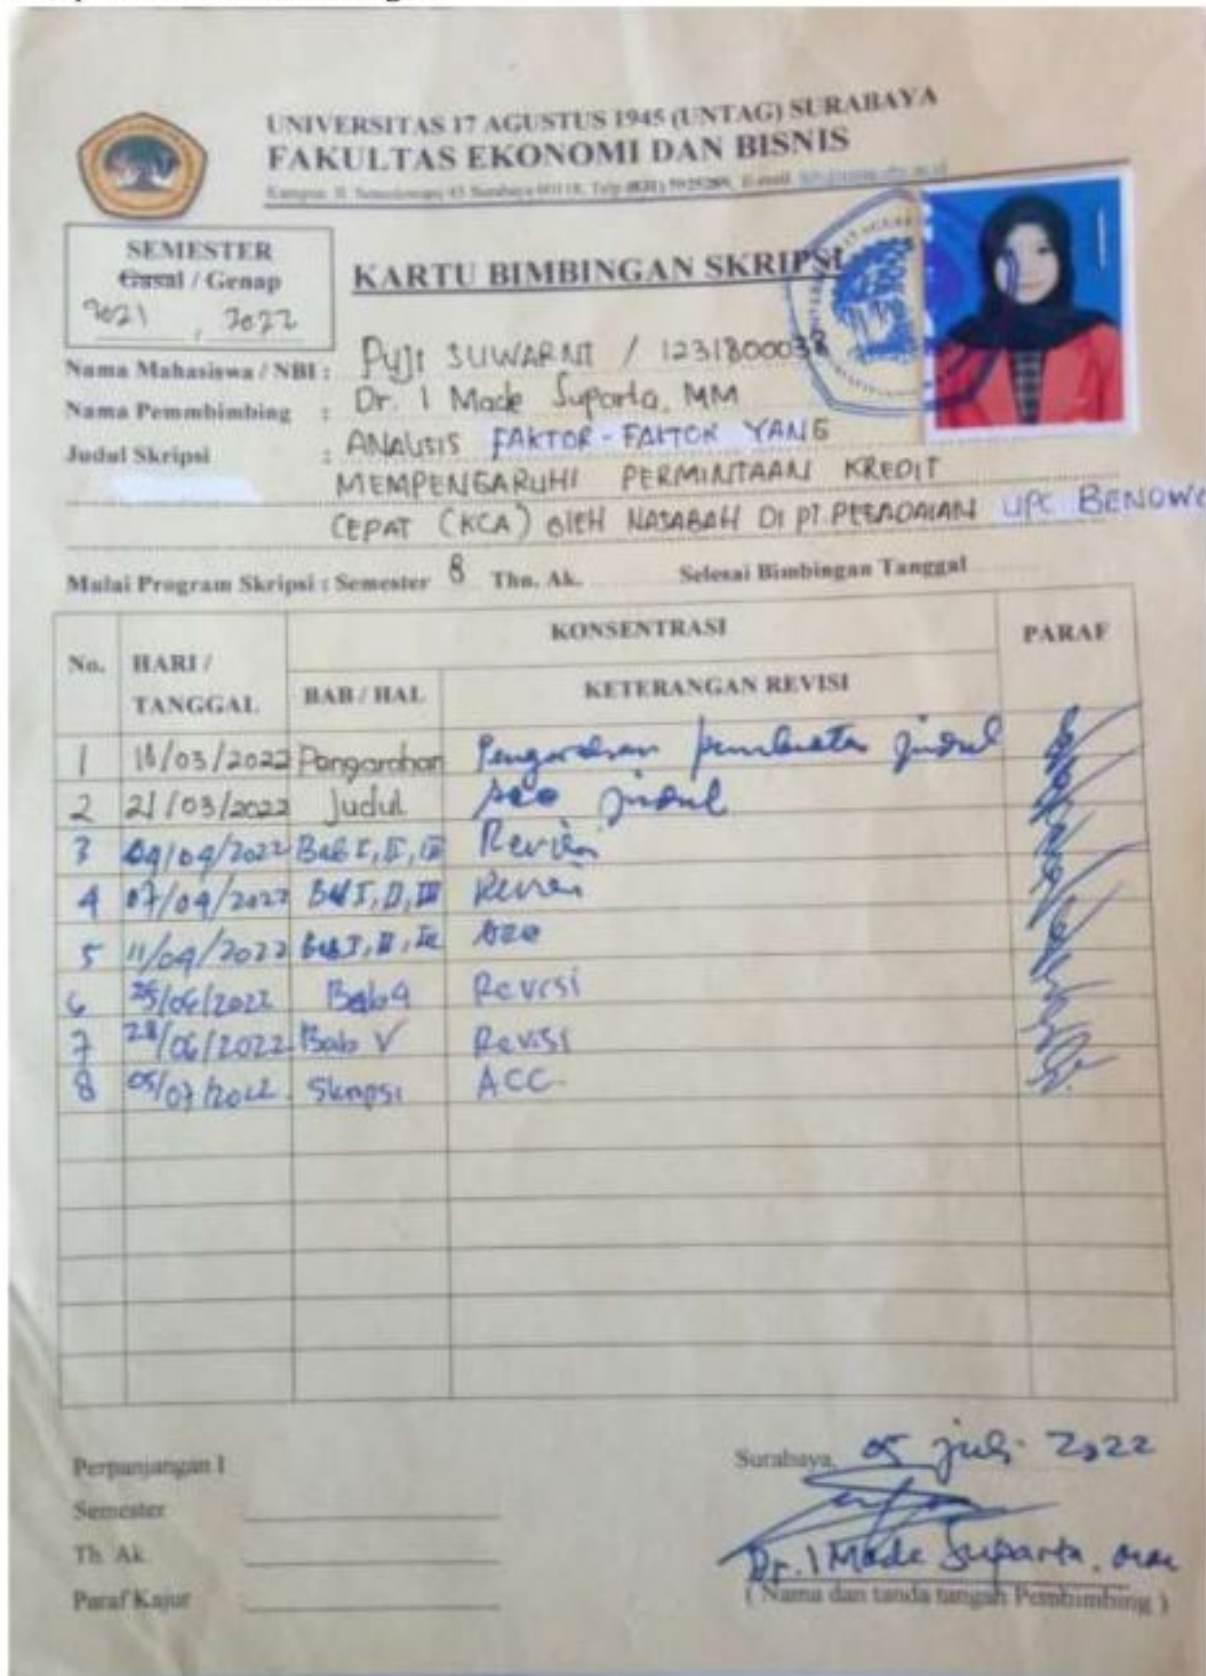 UNIVERSITAS 17 AGUSTUS 1945 (UNTAG) SURABAYA
FAKULTAS EKONOMI DAN BISNIS
SEMESTER
Gasal / Genap
2021 , 2022
KARTU BIMBINGAN SKRIPSI
Nama Mahasiswa / NBI : PUJI SUWARNI / 1231800038
Nama Pemmbimbing : Dr. I Made Suparta, MM
Judul Skripsi : ANALISIS FAKTOR-FAKTOR YANG
MEMPENGARUHI PERMINTAAN KREDIT
CEPAT (KCA) OlEH NASABAH DI PT. PEGADAIAN UPC BENOWO
Mulai Program Skripsi : Semester 8 Thn. Ak. Selesai Bimbingan Tanggal
No. HARI / TANGGAL KONSENTRASI PARAF
BAB / HAL KETERANGAN REVISI
1 /03/2022 Pengarahan Pengarahan pembuatan judul
2 21/03/2022 Judul Acc judul
3 /04/2022 Bab I, II, III Revisi
4 07/04/2022 Bab I, II, III Revisi
5 11/04/2022 Bab I, II, III Acc
6 25/06/2022 Bab 4 Revisi
7 28/06/2022 Bab V Revisi
8 05/07/2022 Skripsi ACC
Perpanjangan I
Semester
Th. Ak.
Paraf Kajur
Surabaya, 05 juli 2022
Dr. I Made Suparta, MM
( Nama dan tanda tangan Pembimbing )